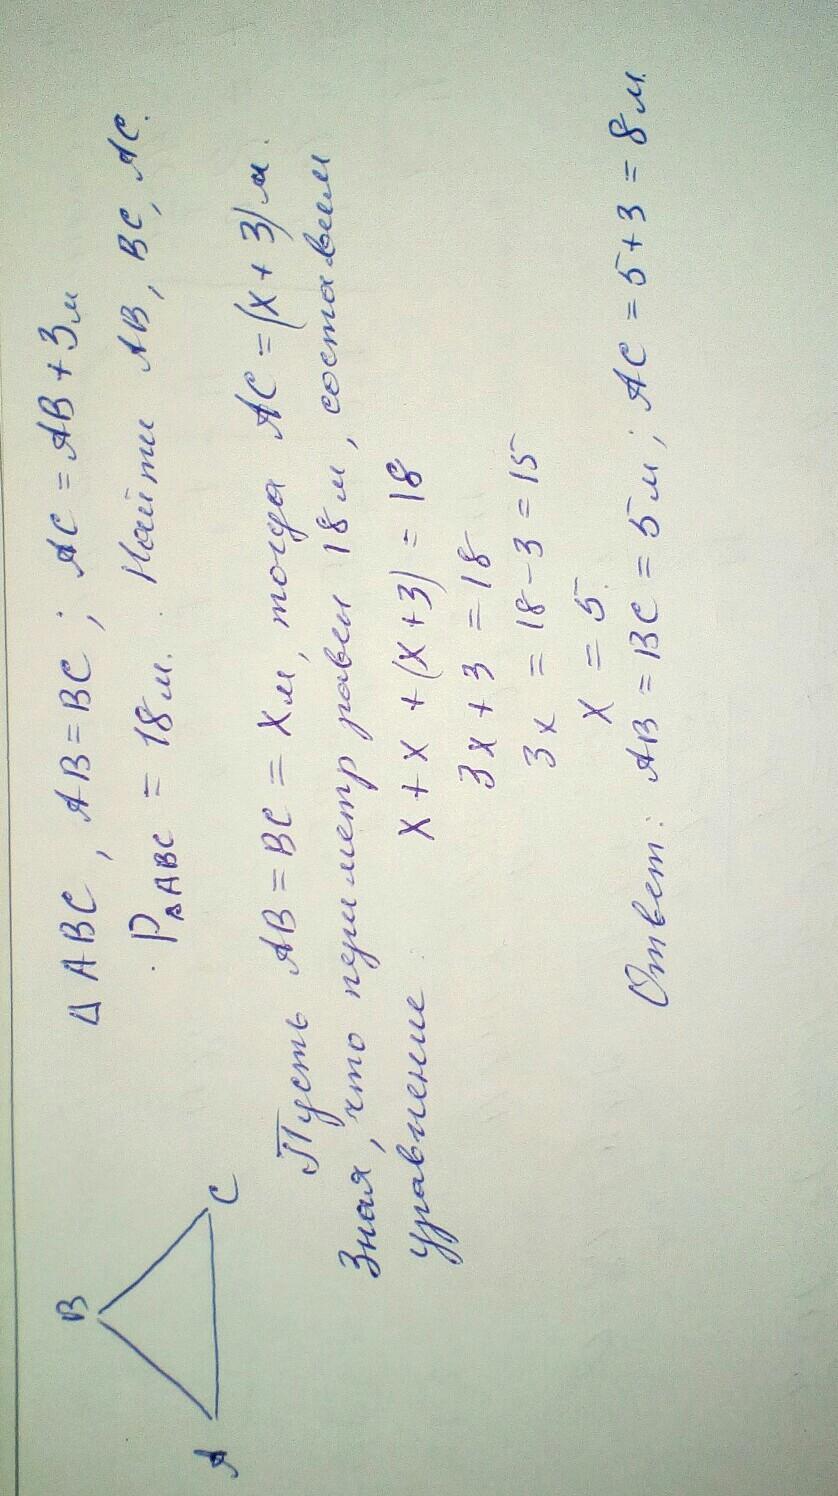 B
A
C
Δ ABC, AB = BC; AC = AB + 3м
P△ABC = 18м. Найти AB, BC, AC.
Пусть AB = BC = xм, тогда AC = (x + 3)м.
Зная, что периметр равен 18м, составим
уравнение
x + x + (x + 3) = 18
3x + 3 = 18
3x = 18 - 3 = 15
x = 5.
Ответ: AB = BC = 5м; AC = 5 + 3 = 8м.